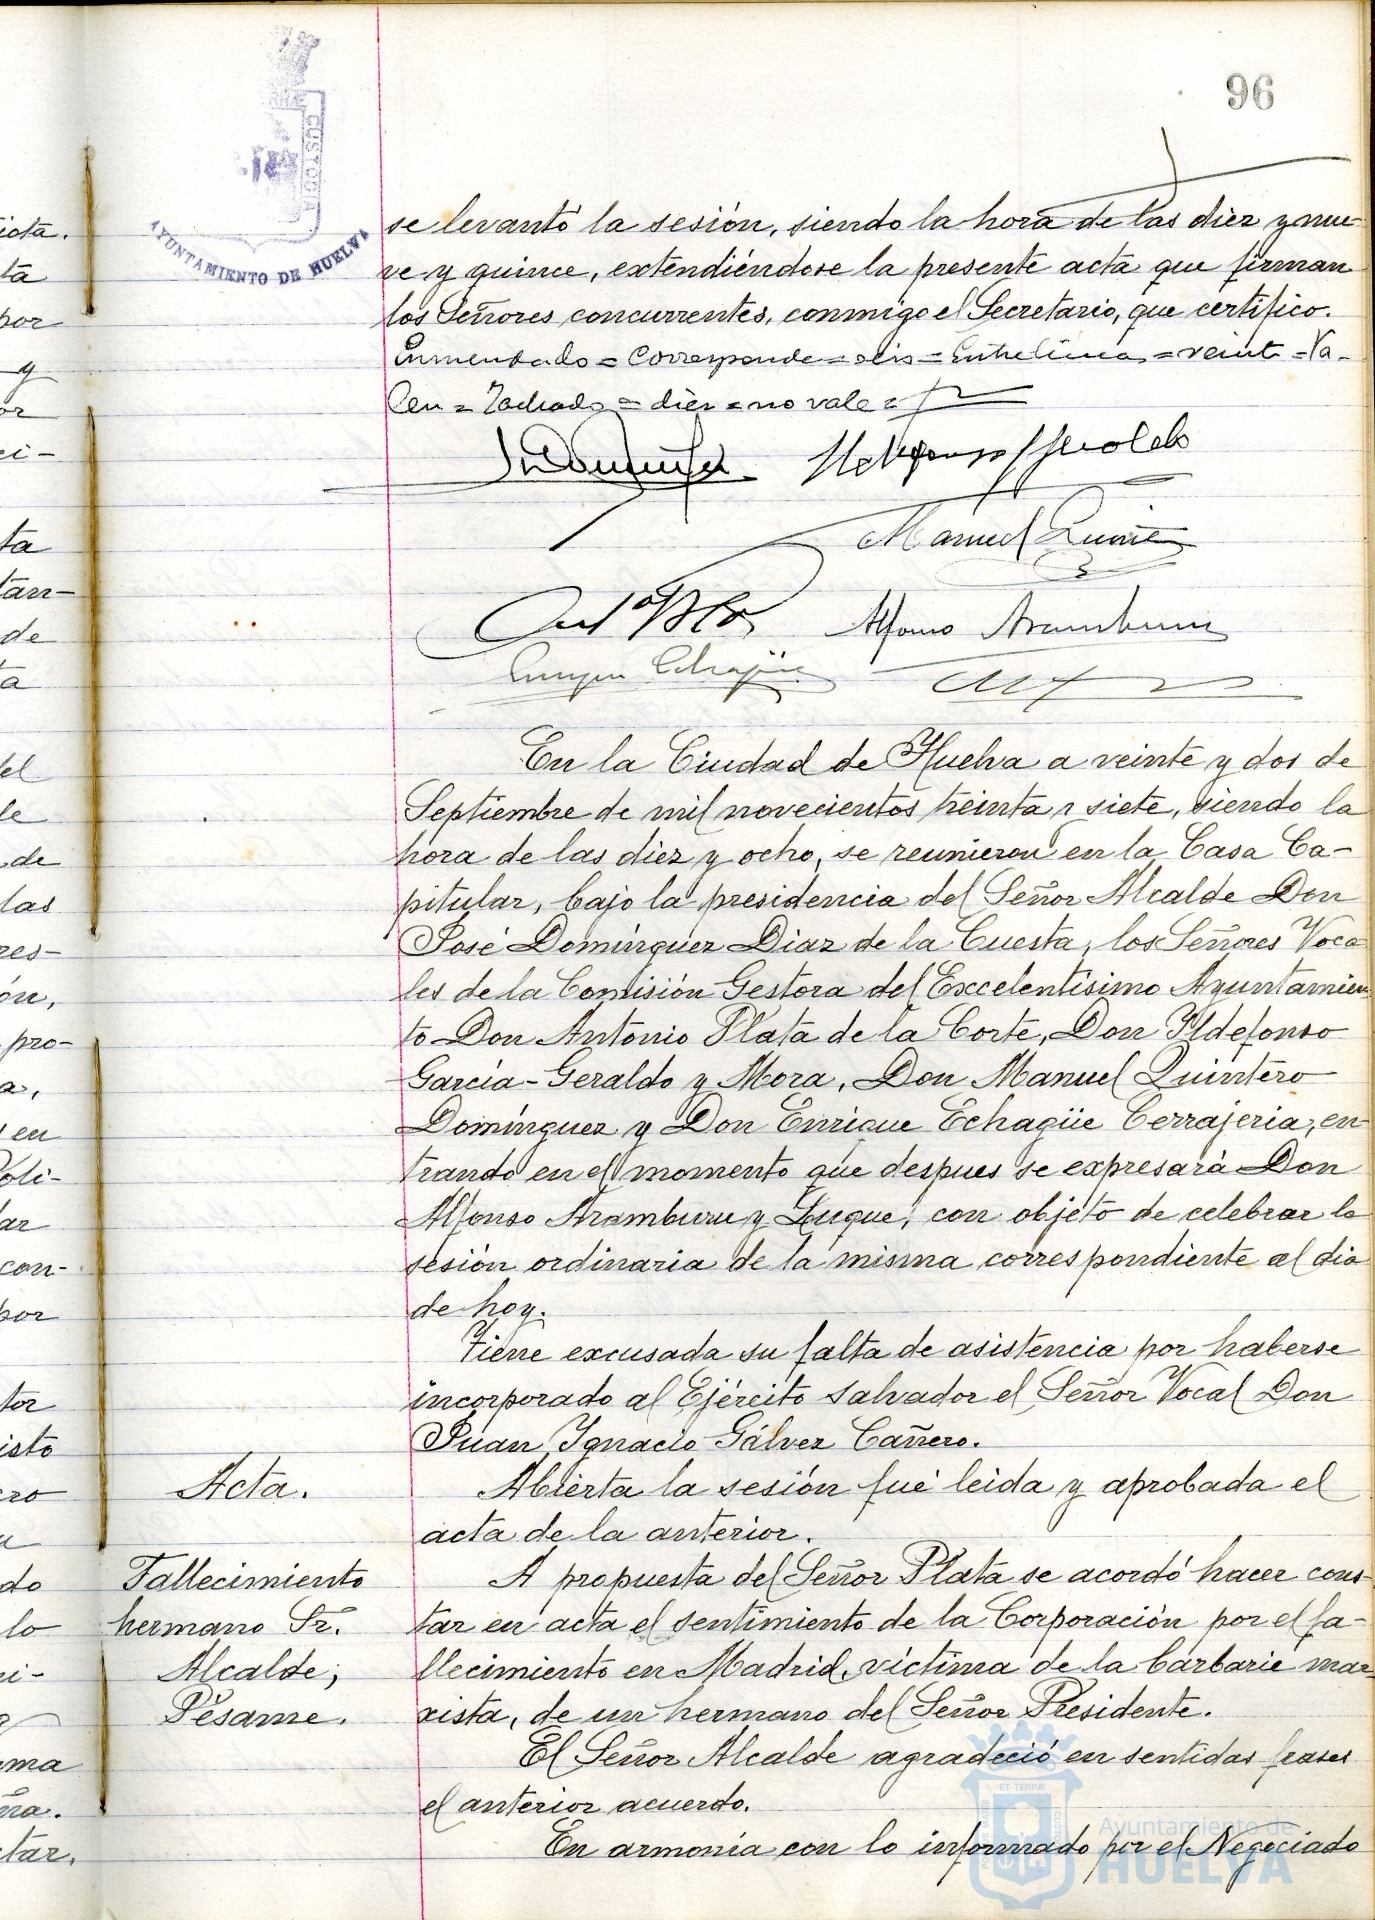 96
AYUNTAMIENTO DE HUELVA
CUSTODIA
se levantó la sesión, siendo la hora de las diez y nue-
ve y quince, extendiéndose la presente acta que firman
los Señores concurrentes, conmigo el Secretario, que certifico.
Enmendado = Corresponde = seis = Entrelíneas = veint = Va-
len = Tachado = diez = no vale =
Manuel Quintero
Alfonso Aramburu
Enrique Echagüe
En la Ciudad de Huelva a veinte y dos de
Septiembre de mil novecientos treinta y siete, siendo la
hora de las diez y ocho, se reunieron en la Casa Ca-
pitular, bajo la presidencia del Señor Alcalde Don
José Domínguez Diaz de la Cuesta, los Señores Voca
les de la Comisión Gestora del Excelentísimo Ayuntamien
to Don Antonio Plata de la Corte, Don Ildefonso
García-Geraldo y Mora, Don Manuel Quintero
Domínguez y Don Enrique Echagüe Cerrajeria, en-
trando en el momento que despues se expresará Don
Alfonso Aramburu y Luque, con objeto de celebrar la
sesión ordinaria de la misma correspondiente al dia
de hoy.
Tiene excusada su falta de asistencia por haberse
incorporado al Ejército salvador el Señor Vocal Don
Juan Ignacio Gálvez Cañero.
Acta.
Abierta la sesión fué leida y aprobada el
acta de la anterior.
Fallecimiento
hermano Sr.
Alcalde;
Pésame.
A propuesta del Señor Plata se acordó hacer cons-
tar en acta el sentimiento de la Corporación por el fa-
llecimiento en Madrid, víctima de la barbarie mar-
xista, de un hermano del Señor Presidente.
El Señor Alcalde agradeció en sentidas frases
el anterior acuerdo.
En armonia con lo informado por el Negociado
Ayuntamiento de
HUELVA